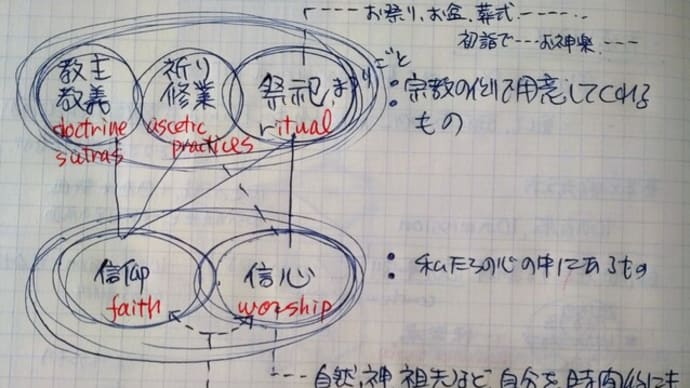 お祭り、お盆、葬式
初詣で お神楽
教主 祈り 祭祀、まつりごと
教義 修業
doctrine ascetic ritual
sutras practices
:宗教の側で用意してくれる
もの
信仰 信心
faith worship
:私たちの心の中にあるもの
自然、神 祖先など 自分を 時間的にも